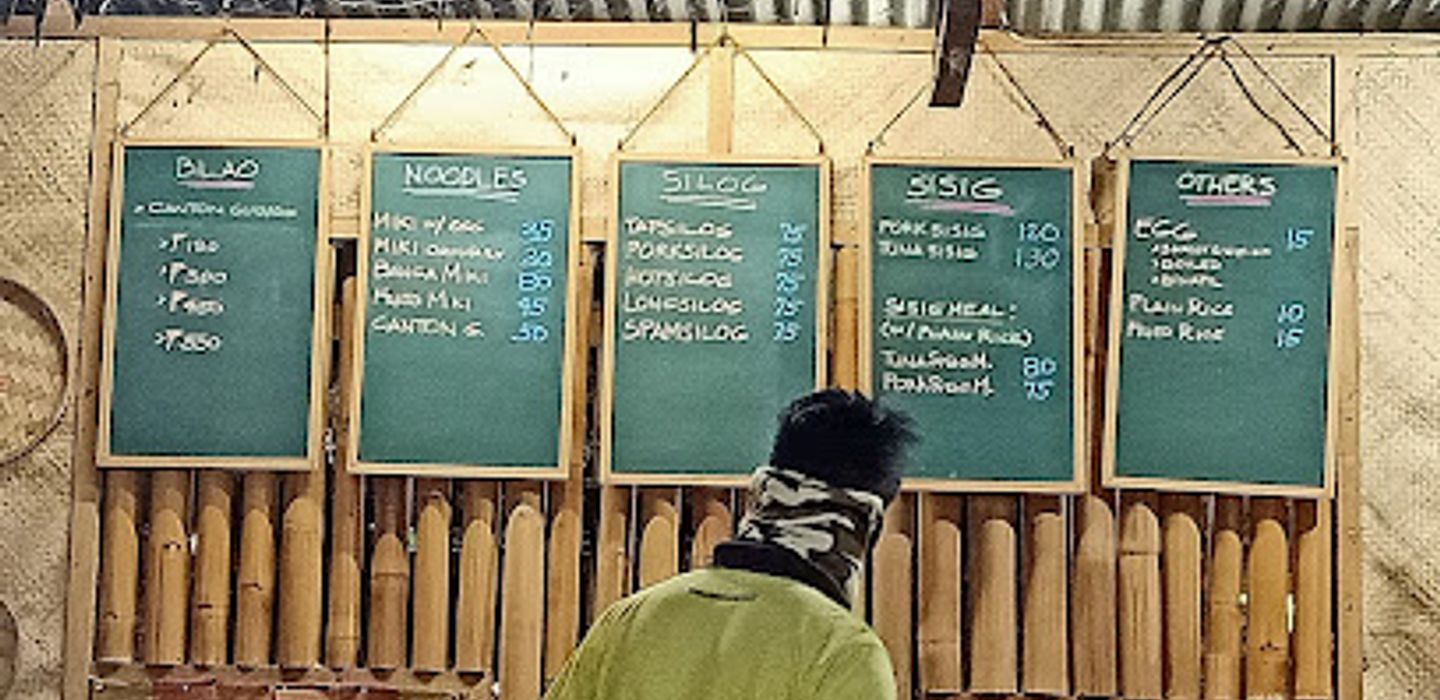 BILAO
• CANTON GUISADO
>₱180
>₱300
>₱450
>₱550
NOODLES
MIKI w/ EGG 35
MIKI 30
BAHGA MIKI 80
MIKI 45
CANTON G. 50
SILOG
TAPSILOG 75
PORKSILOG 75
HOTSILOG 75
LONGSILOG 75
SPAMSILOG 75
SISIG
PORK SISIG 120
TUNA SISIG 130
SISIG MEAL:
(W/ PLAIN RICE)
TUNA SISIG M. 80
PORK SISIG M. 75
OTHERS
EGG 15
>BOILED
PLAIN RICE 10
RICE 15